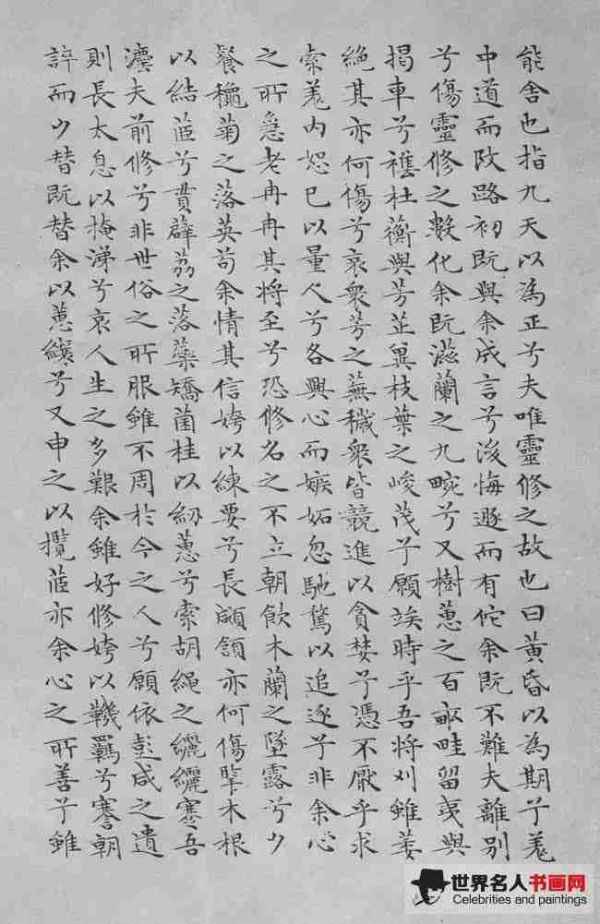 能舍也指九天以為正兮夫唯靈修之故也曰黃昏以為期兮羌
中道而改路初既與余成言兮後悔遯而有佗余既不難夫離別
兮傷靈修之數化余既滋蘭之九畹兮又樹蕙之百畝畦留夷與
揭車兮襍杜蘅與芳芷冀枝葉之峻茂兮願竢時乎吾將刈雖萎
絕其亦何傷兮哀衆芳之蕪穢衆皆競進以貪婪兮憑不厭乎求
索羌內恕己以量人兮各興心而嫉妬忽馳騖以追逐兮非余心
之所急老冉冉其將至兮恐修名之不立朝飲木蘭之墜露兮夕
餐秋菊之落英苟余情其信姱以練要兮長顑頷亦何傷擥木根
以結茝兮貫薜荔之落蘂矯菌桂以紉蕙兮索胡繩之纚纚謇吾
灋夫前修兮非世俗之所服雖不周於今之人兮願依彭咸之遺
則長太息以掩涕兮哀人生之多艱余雖好修姱以鞿羈兮謇朝
誶而夕替既替余以蕙纕兮又申之以攬茝亦余心之所善兮雖
世界名人书画网
Celebrities and paintings